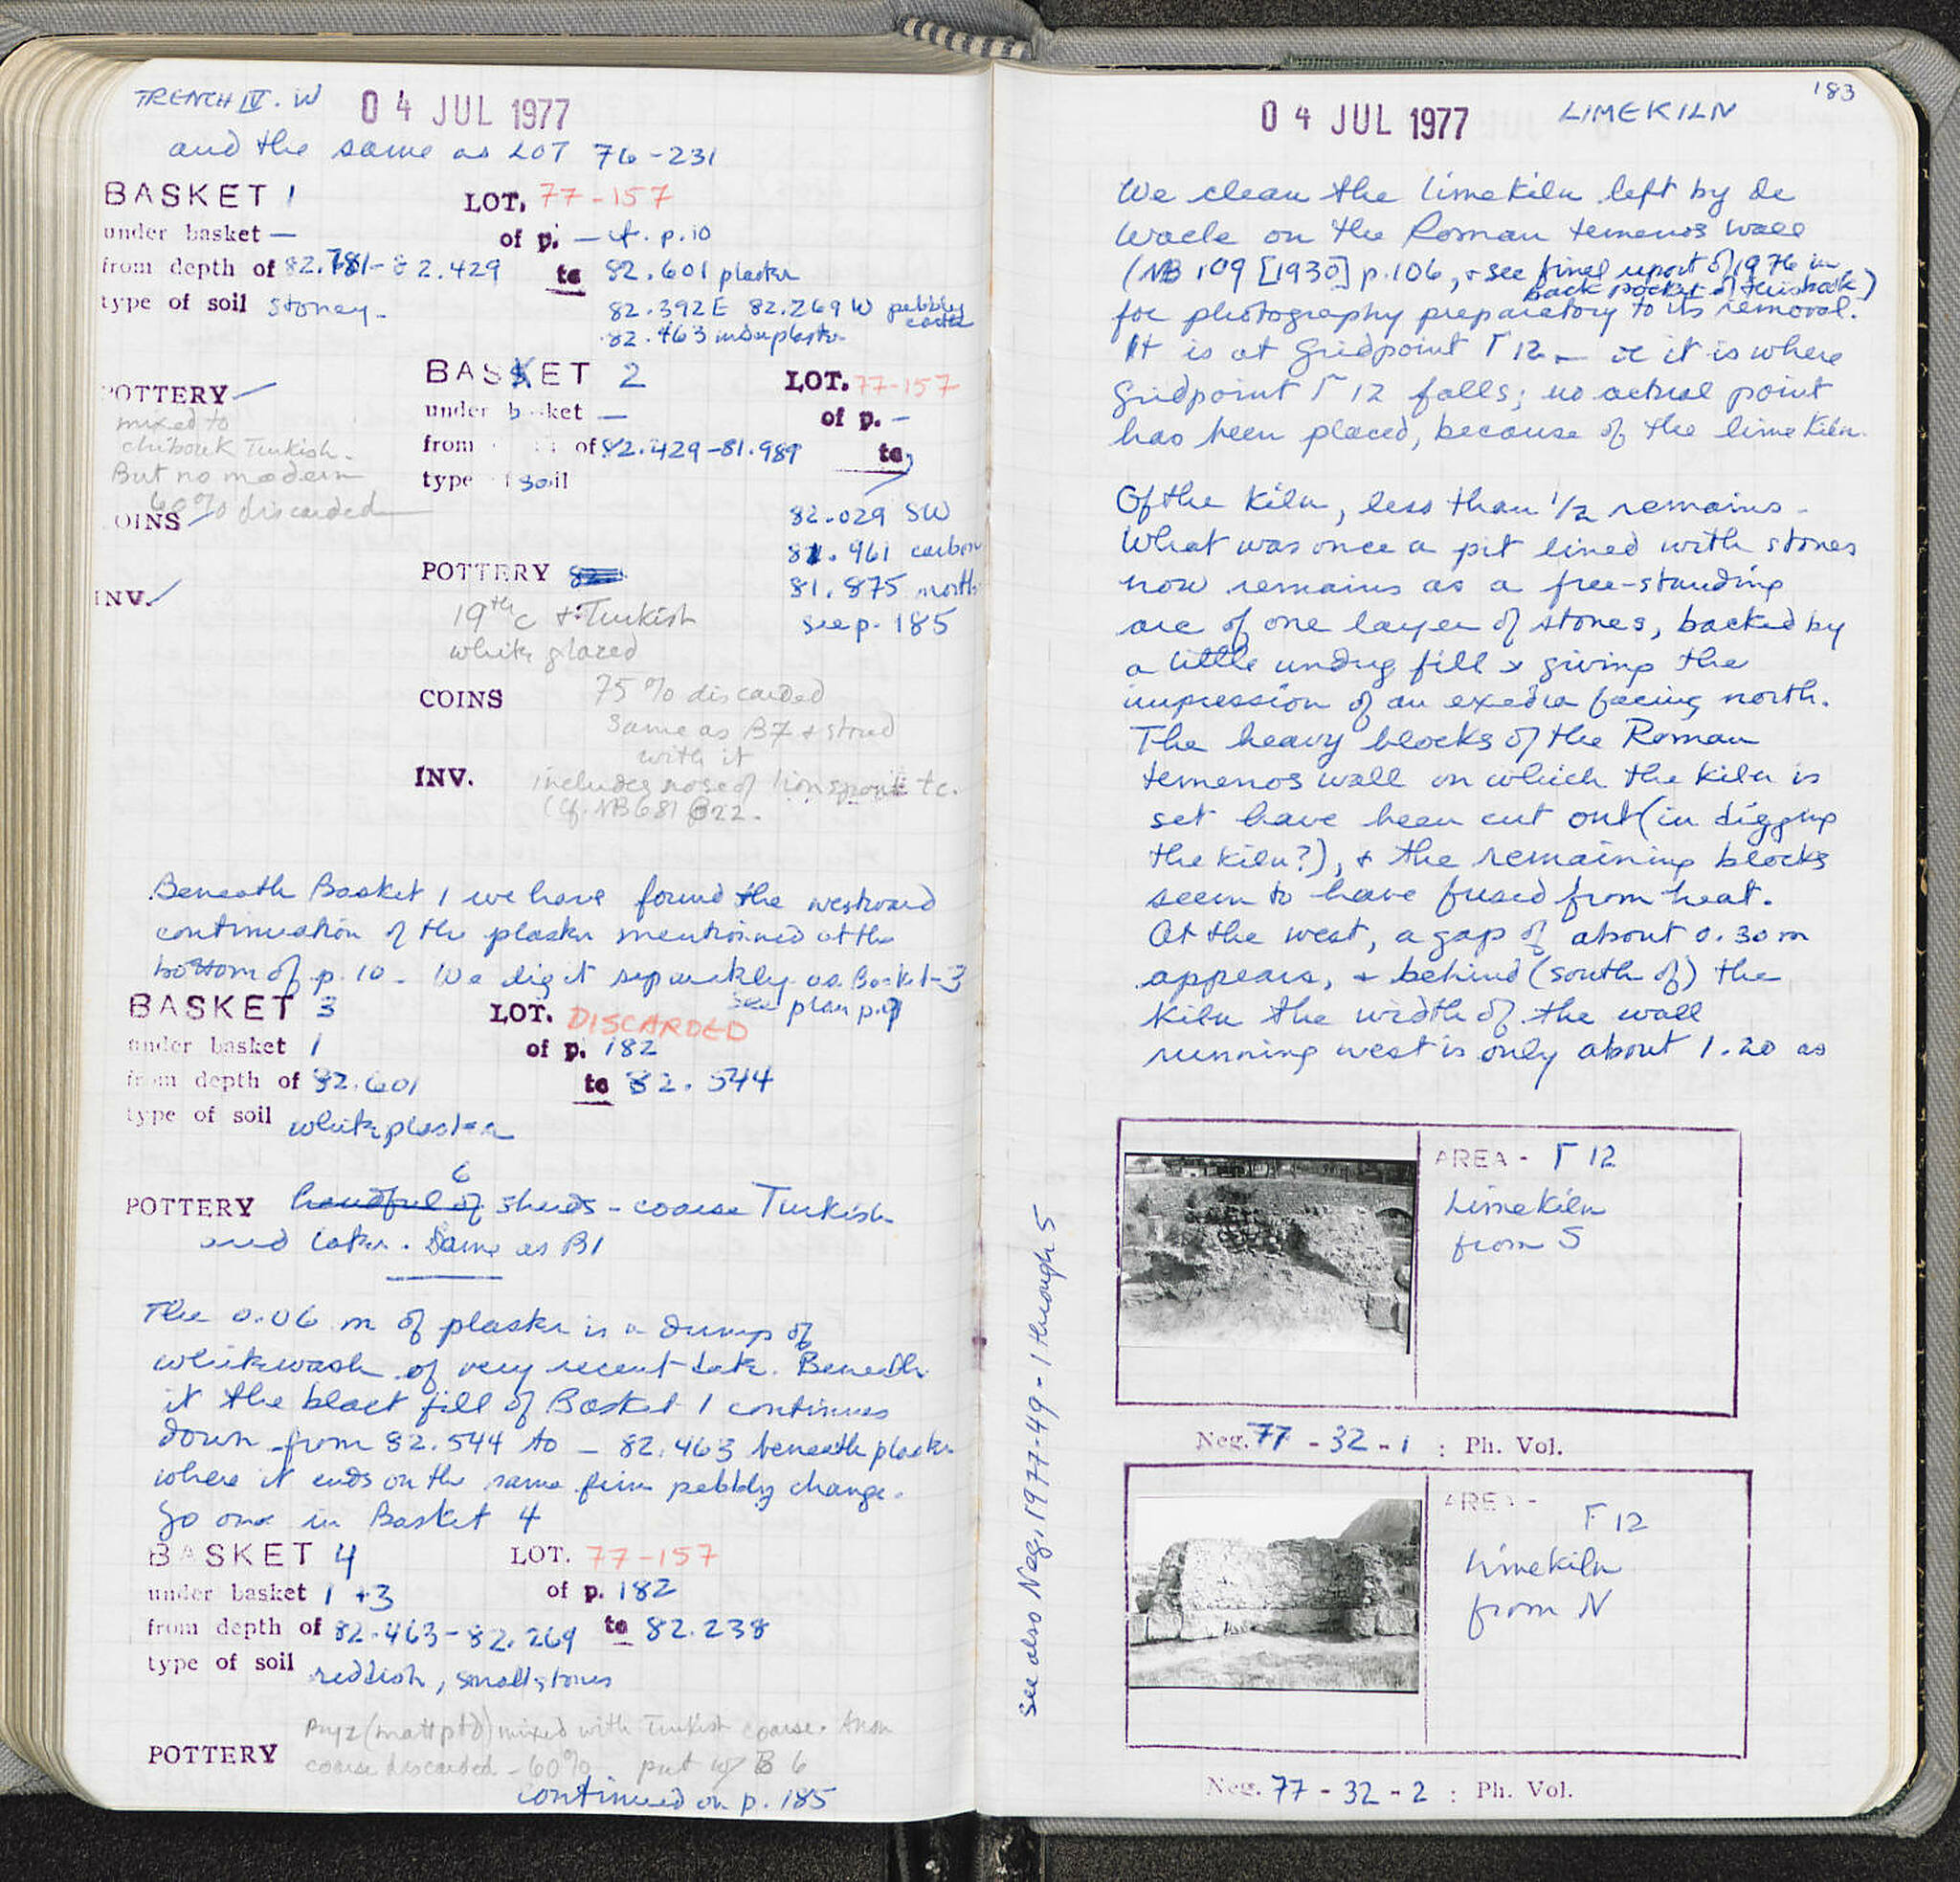 TRENCH IV. W 04 JUL 1977
and the same as LOT 76-231
BASKET 1 LOT. 77-157
under basket — of p. — cf. p. 10
from depth of 82.781-82.429 to 82.601 plaster
type of soil stoney. 82.392E 82.269 W pebbly earth
82.463 under plaster
POTTERY —
mixed to
chibouk Turkish.
But no modern
60% discarded
COINS
INV.
BASKET 2 LOT. 77-157
under basket — of p. -
from of 82.429-81.989 to
type soil
82.029 SW
81.961 carbon
81.875 north
see p. 185
POTTERY
19th c + Turkish
white glazed
COINS 75% discarded
Same as B7 & stored
with it
INV. includes nose of lion spout etc.
(cf. NB 681 22.
Beneath Basket 1 we have found the westward
continuation of the plaster mentioned at the
bottom of p. 10. We dig it separately as Basket 3
see plan p. 9
BASKET 3 LOT. DISCARDED
under basket 1 of p. 182
from depth of 82.601 to 82.544
type of soil white plaster
POTTERY handful of 6 sherds - coarse Turkish
and later. Same as B1
The 0.06 m of plaster is a dump of
whitewash of very recent date. Beneath
it the black fill of Basket 1 continues
down from 82.544 to — 82.463 beneath plaster
where it ends on the same firm pebbly change.
Go on in Basket 4
BASKET 4 LOT. 77-157
under basket 1 +3 of p. 182
from depth of 82.463-82.269 to 82.238
type of soil reddish, small stones
POTTERY Byz (matt ptd) mixed with Turkish coarse.
coarse discarded - 60%. put w/ B 6
continued on p. 185
183
04 JUL 1977 LIMEKILN
We clean the limekiln left by de
Waele on the Roman temenos wall
(NB 109 [1930] p. 106, & see final report of 1976 in
back pocket of this book)
for photography preparatory to its removal.
It is at Gridpoint Γ 12 — or it is where
Gridpoint Γ 12 falls; no actual point
has been placed, because of the limekiln.
Of the kiln, less than 1/2 remains.
What was once a pit lined with stones
now remains as a free-standing
arc of one layer of stones, backed by
a little undug fill & giving the
impression of an exedra facing north.
The heavy blocks of the Roman
temenos wall on which the kiln is
set have been cut out (in digging
the kiln?), & the remaining blocks
seem to have fused from heat.
At the west, a gap of about 0.30 m
appears, & behind (south of) the
kiln the width of the wall
running west is only about 1.20 as
AREA - Γ 12
Limekiln
from S
Neg. 77 - 32 - 1 : Ph. Vol.
AREA -
Γ 12
limekiln
from N
Neg. 77 - 32 - 2 : Ph. Vol.
see also Neg. 1977-49-1 through 5